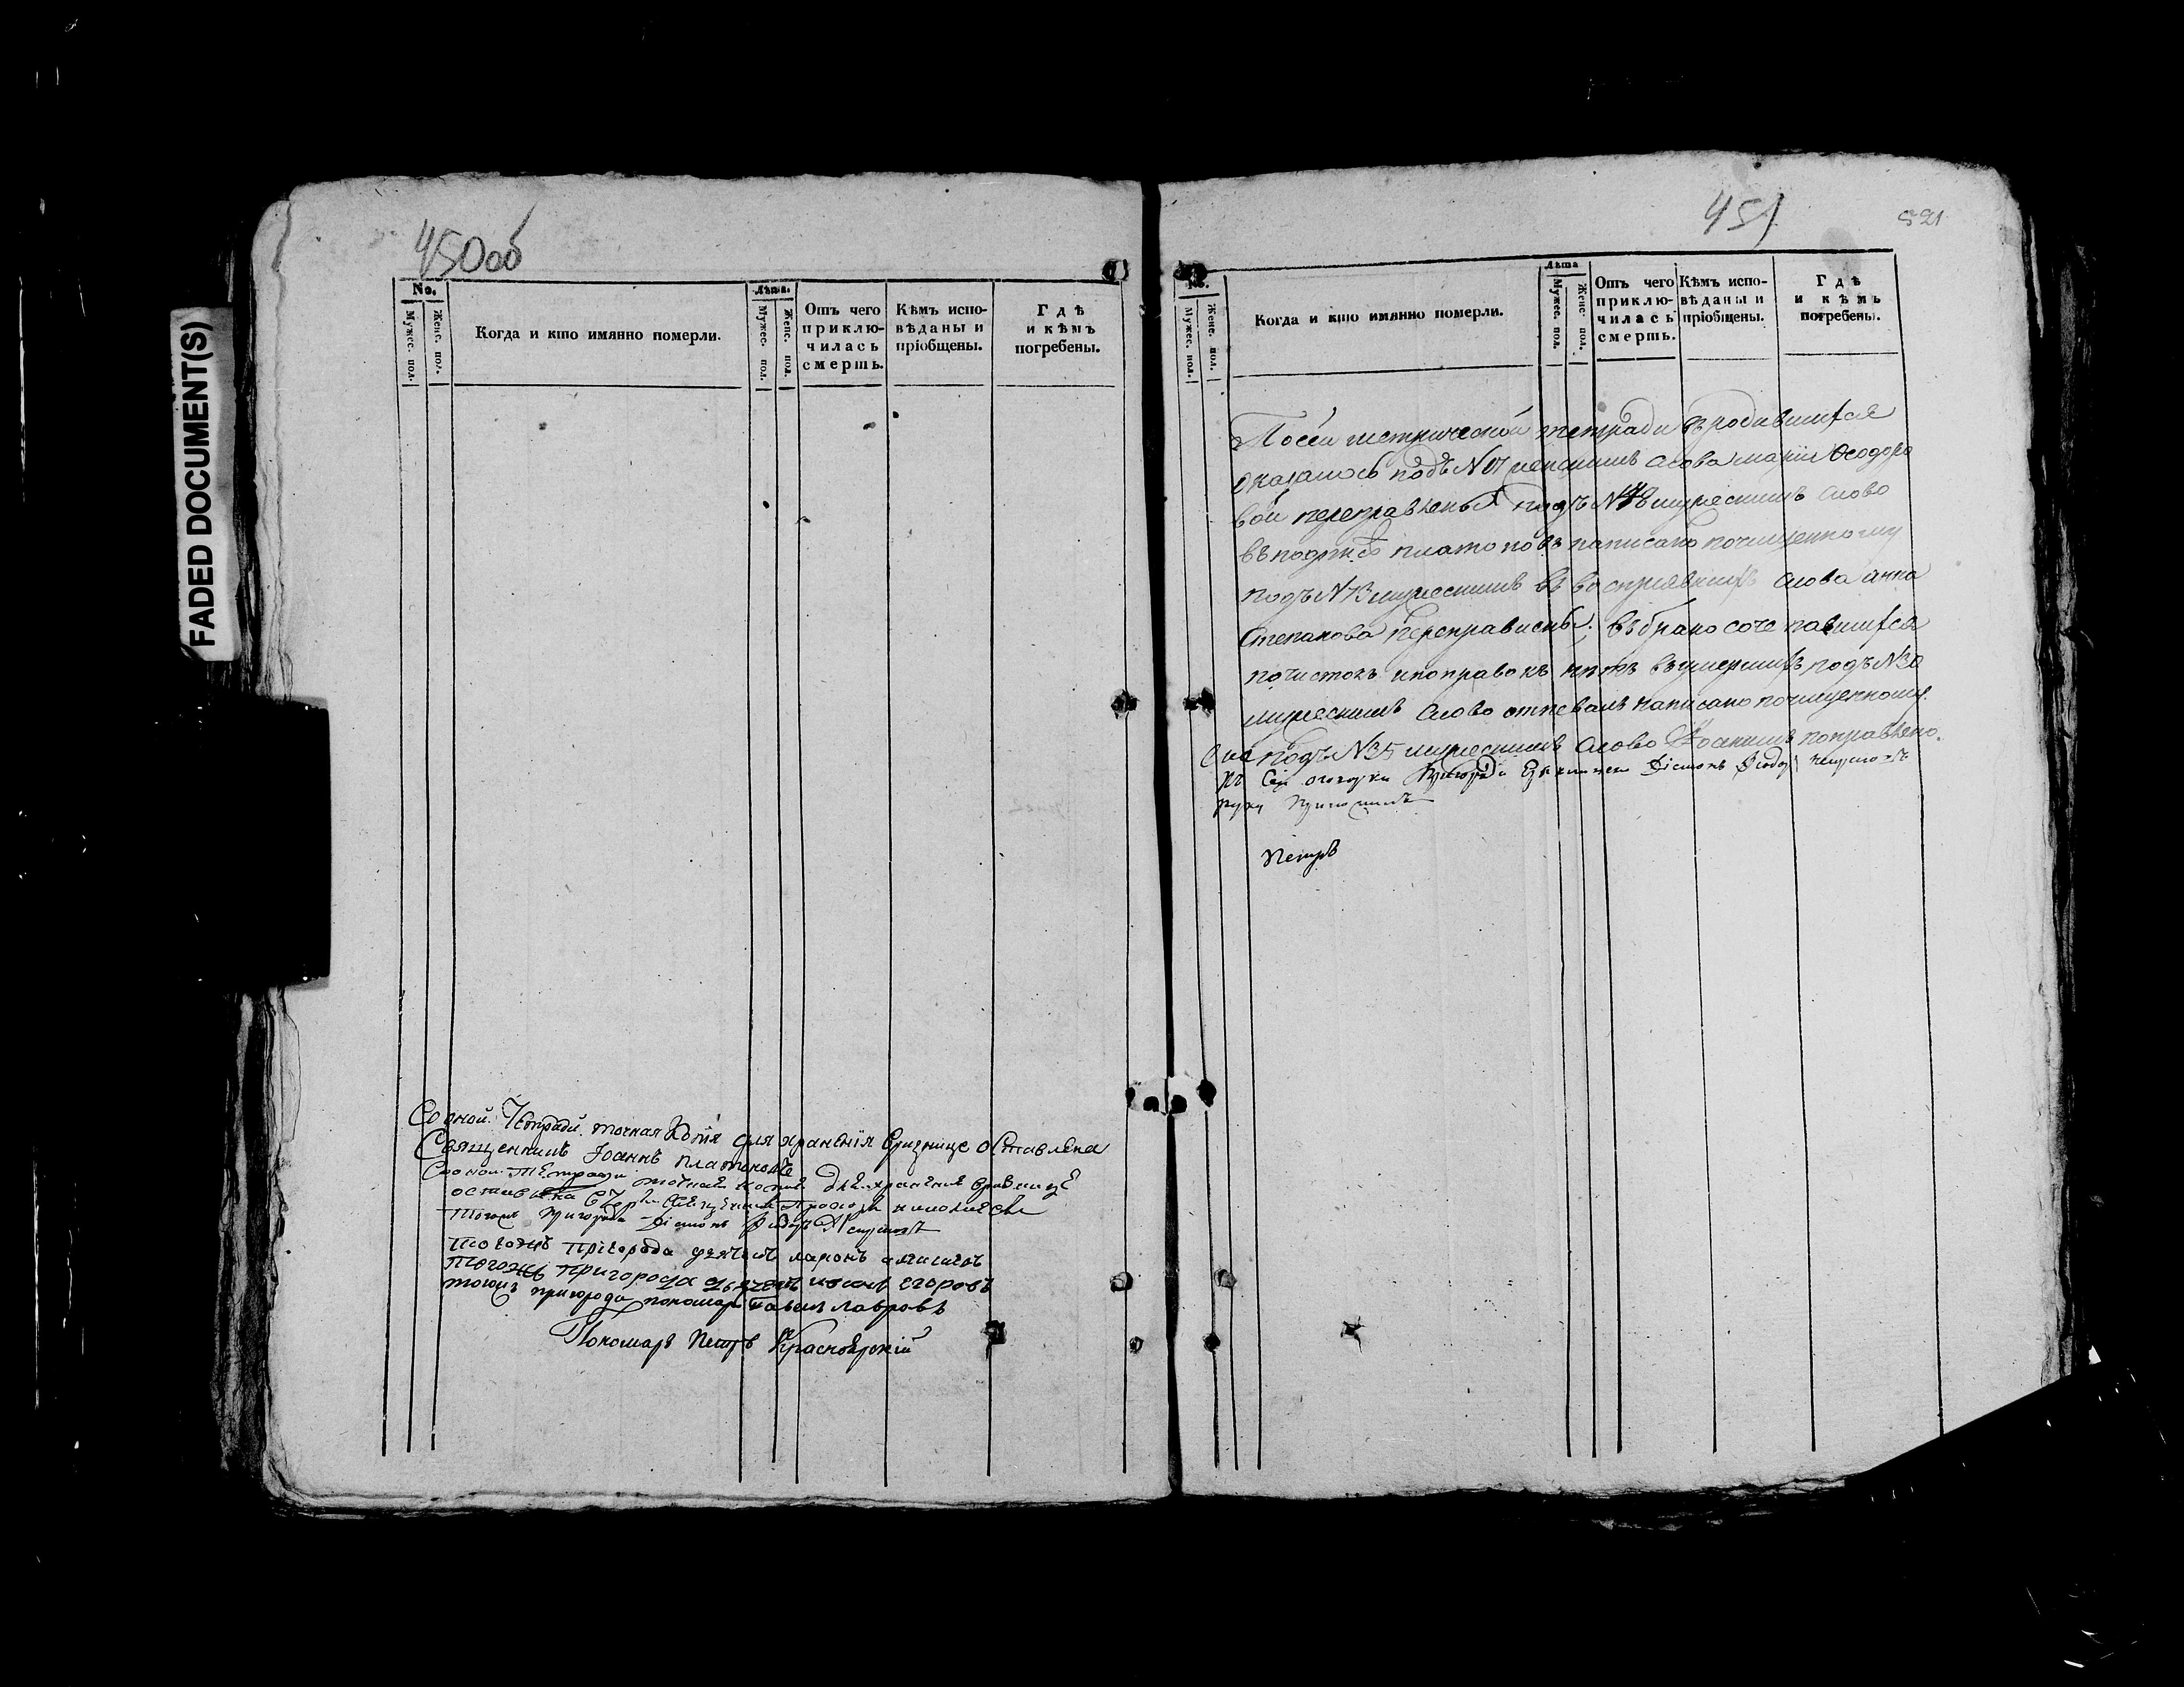 FADED DOCUMENT(S)
450об
No.
Мужес. пол.
Женс. пол.
Когда и кто имянно померли.
Лѣта.
Мужес. пол.
Женс. пол.
Отъ чего приклю-
чилась смерть.
Кѣмъ испо-
вѣданы и
пріобщены.
Гдѣ
и кѣмъ
погребены.
Со оной Тетради точная копія для храненія вризнице оставлена
Священникъ Іоаннъ Платоновъ
Со оной тетради точная копія для храненія вризнице
оставлена
тогожъ пригорода Діаконъ
тогожъ пригорода дьячекъ
тогожъ пригорода дьячекъ Егоровъ
тогожъ пригорода пономарь Павелъ Лавровъ
Пономарь Петръ Красноярскій
451
521
No.
Мужес. пол.
Женс. пол.
Когда и кто имянно померли.
Лѣта
Мужес. пол.
Женс. пол.
Отъ чего
приклю-
чилась
смерть.
Кѣмъ испо-
вѣданы и
пріобщены.
Гдѣ
и кѣмъ
погребены.
По сей метрической тетради въ родившихся
оказалось подъ N женскимъ слова марія Ѳеодоро
вой переправлены подъ N мужескимъ слово
написано почищенному
подъ N 13 мужескимъ въ воспріявшихъ слова анна
Степанова переправлены; въ бракосочетавшихся
почистокъ и поправокъ нѣтъ въ умершихъ подъ N 30
мужескимъ слово отпевалъ написано почищенному
подъ N 35 мужескимъ слово поправлено.
къ сей Діаконъ
руку приложилъ
Петръ